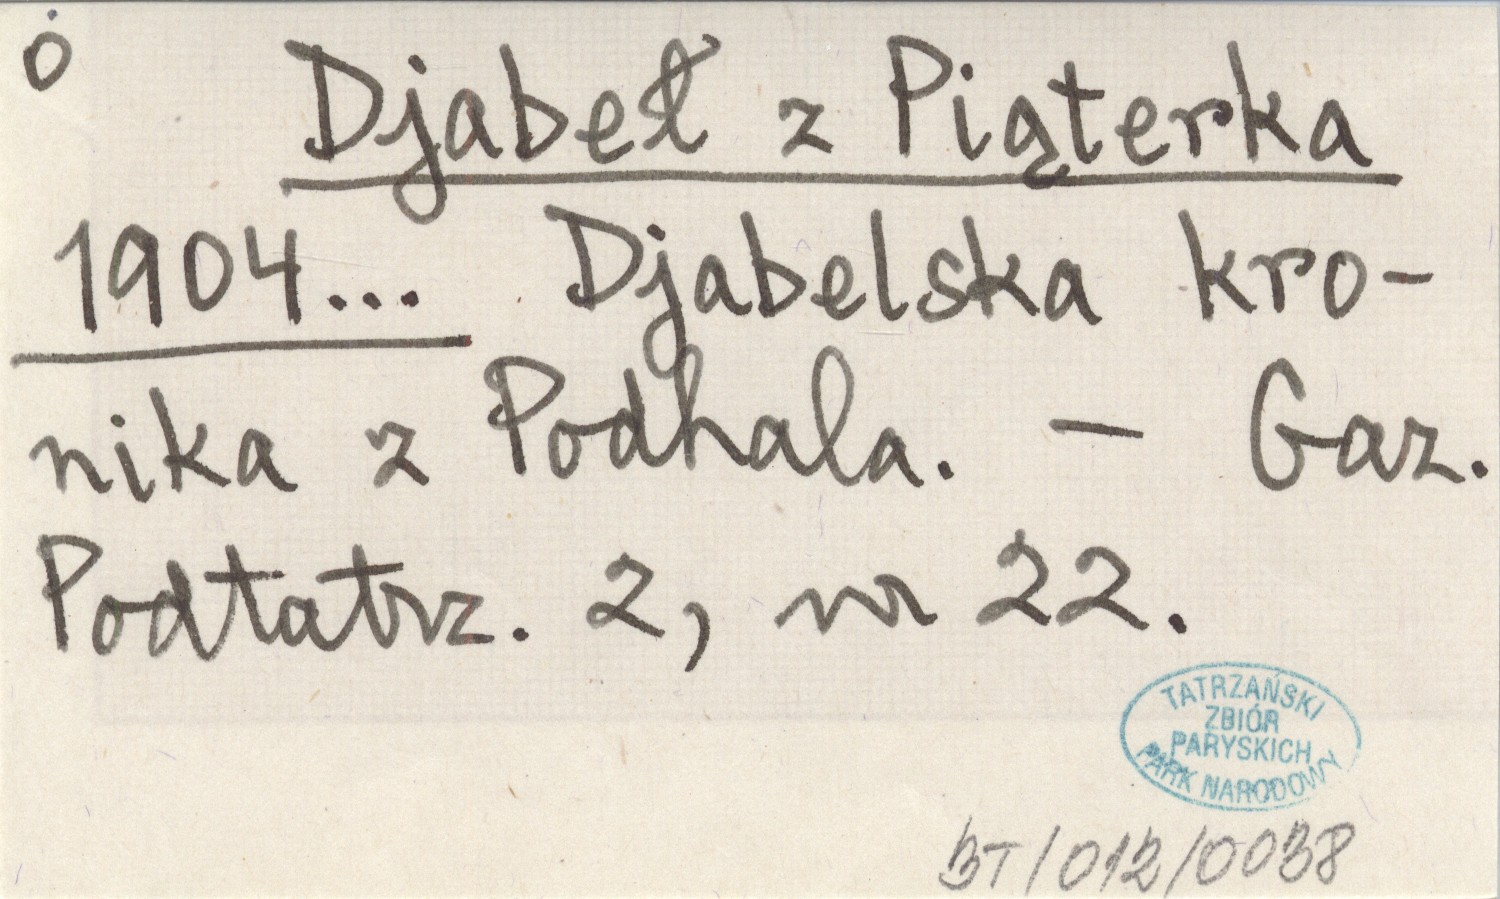 ó
Djabeł z Piąterka
1904... Djabelska kro-
nika z Podhala. — Gaz.
Podtatrz. 2, nr 22.
TATRZAŃSKI
ZBIÓR
PARYSKICH
PARK NARODOWY
BT/012/0038